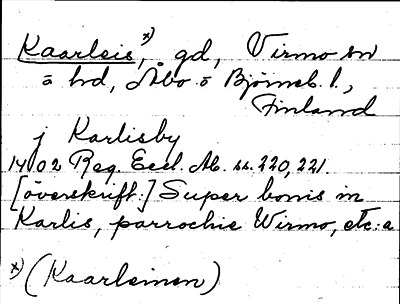 Kaarleis,*) gd, Virmo sn
o hd, Åbo o Björneb. l.,
Finland
j Karlisby
1402 Reg. Eccl. Ab. ss. 220, 221.
[överskrift:] Super bonis in
Karlis, parrochie Wirmo, etc: a
*) (Kaarleinen)